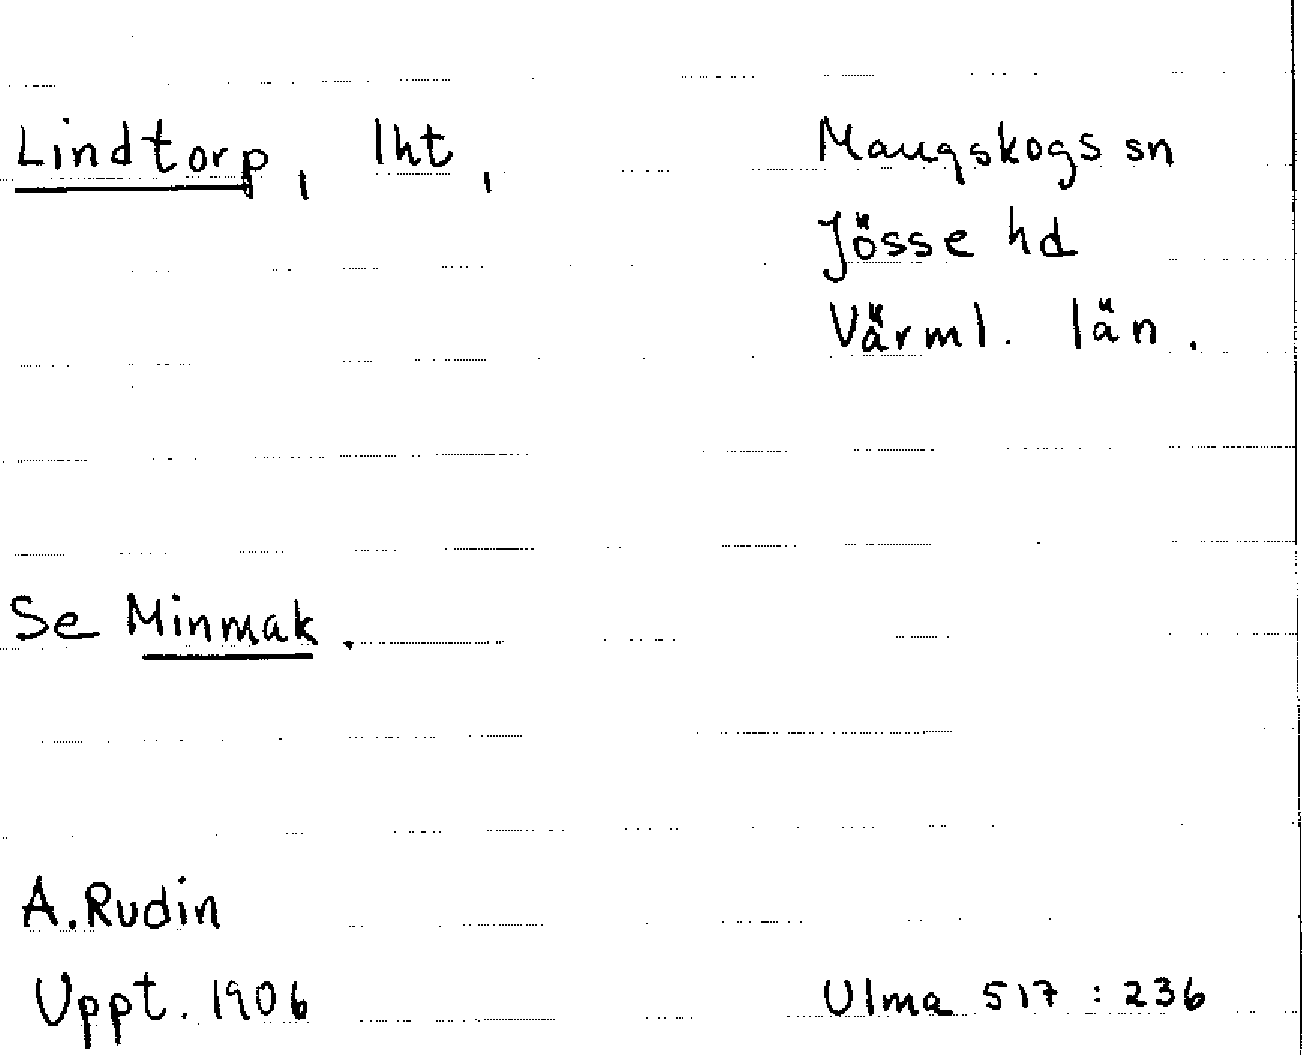 Lindtorp, lht, Mangskogs sn
Jösse hd
Värml. län.
Se Minmak.
A. Rudin
Uppt. 1906 Ulma 517:236